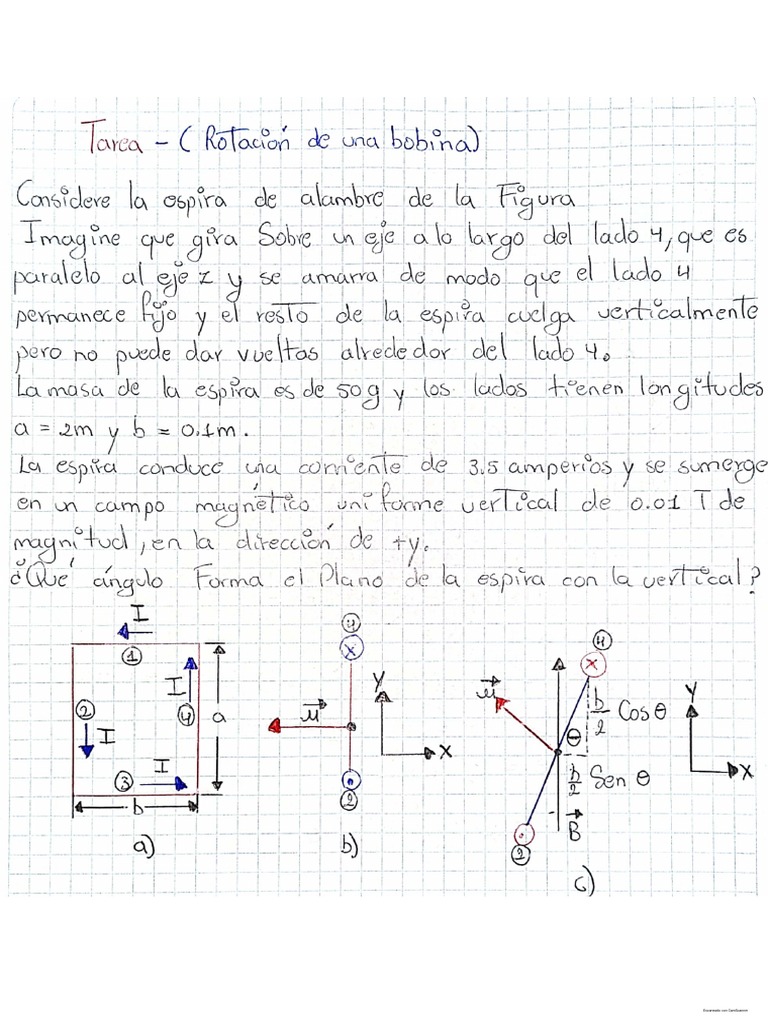 Tarea - (Rotación de una bobina)
Considere la espira de alambre de la Figura
Imagine que gira Sobre un eje a lo largo del lado 4, que es
paralelo al eje z y se amarra de modo que el lado 4
permanece fijo y el resto de la espira cuelga verticalmente
pero no puede dar vueltas alrededor del lado 4.
La masa de la espira es de 50g y los lados tienen longitudes
a = 2m y b = 0.1m.
La espira conduce una corriente de 3.5 amperios y se sumerge
en un campo magnético uniforme vertical de 0.01 T de
magnitud, en la dirección de +y.
¿Qué ángulo Forma el Plano de la espira con la vertical?
I
1
2
I
I
4
a
3
I
b
a)
4
x
μ⃗
Y
X
2
b)
4
x
μ⃗
θ
b/2 Cos θ
b/2 Sen θ
B⃗
2
Y
X
c)
Escaneado con CamScanner